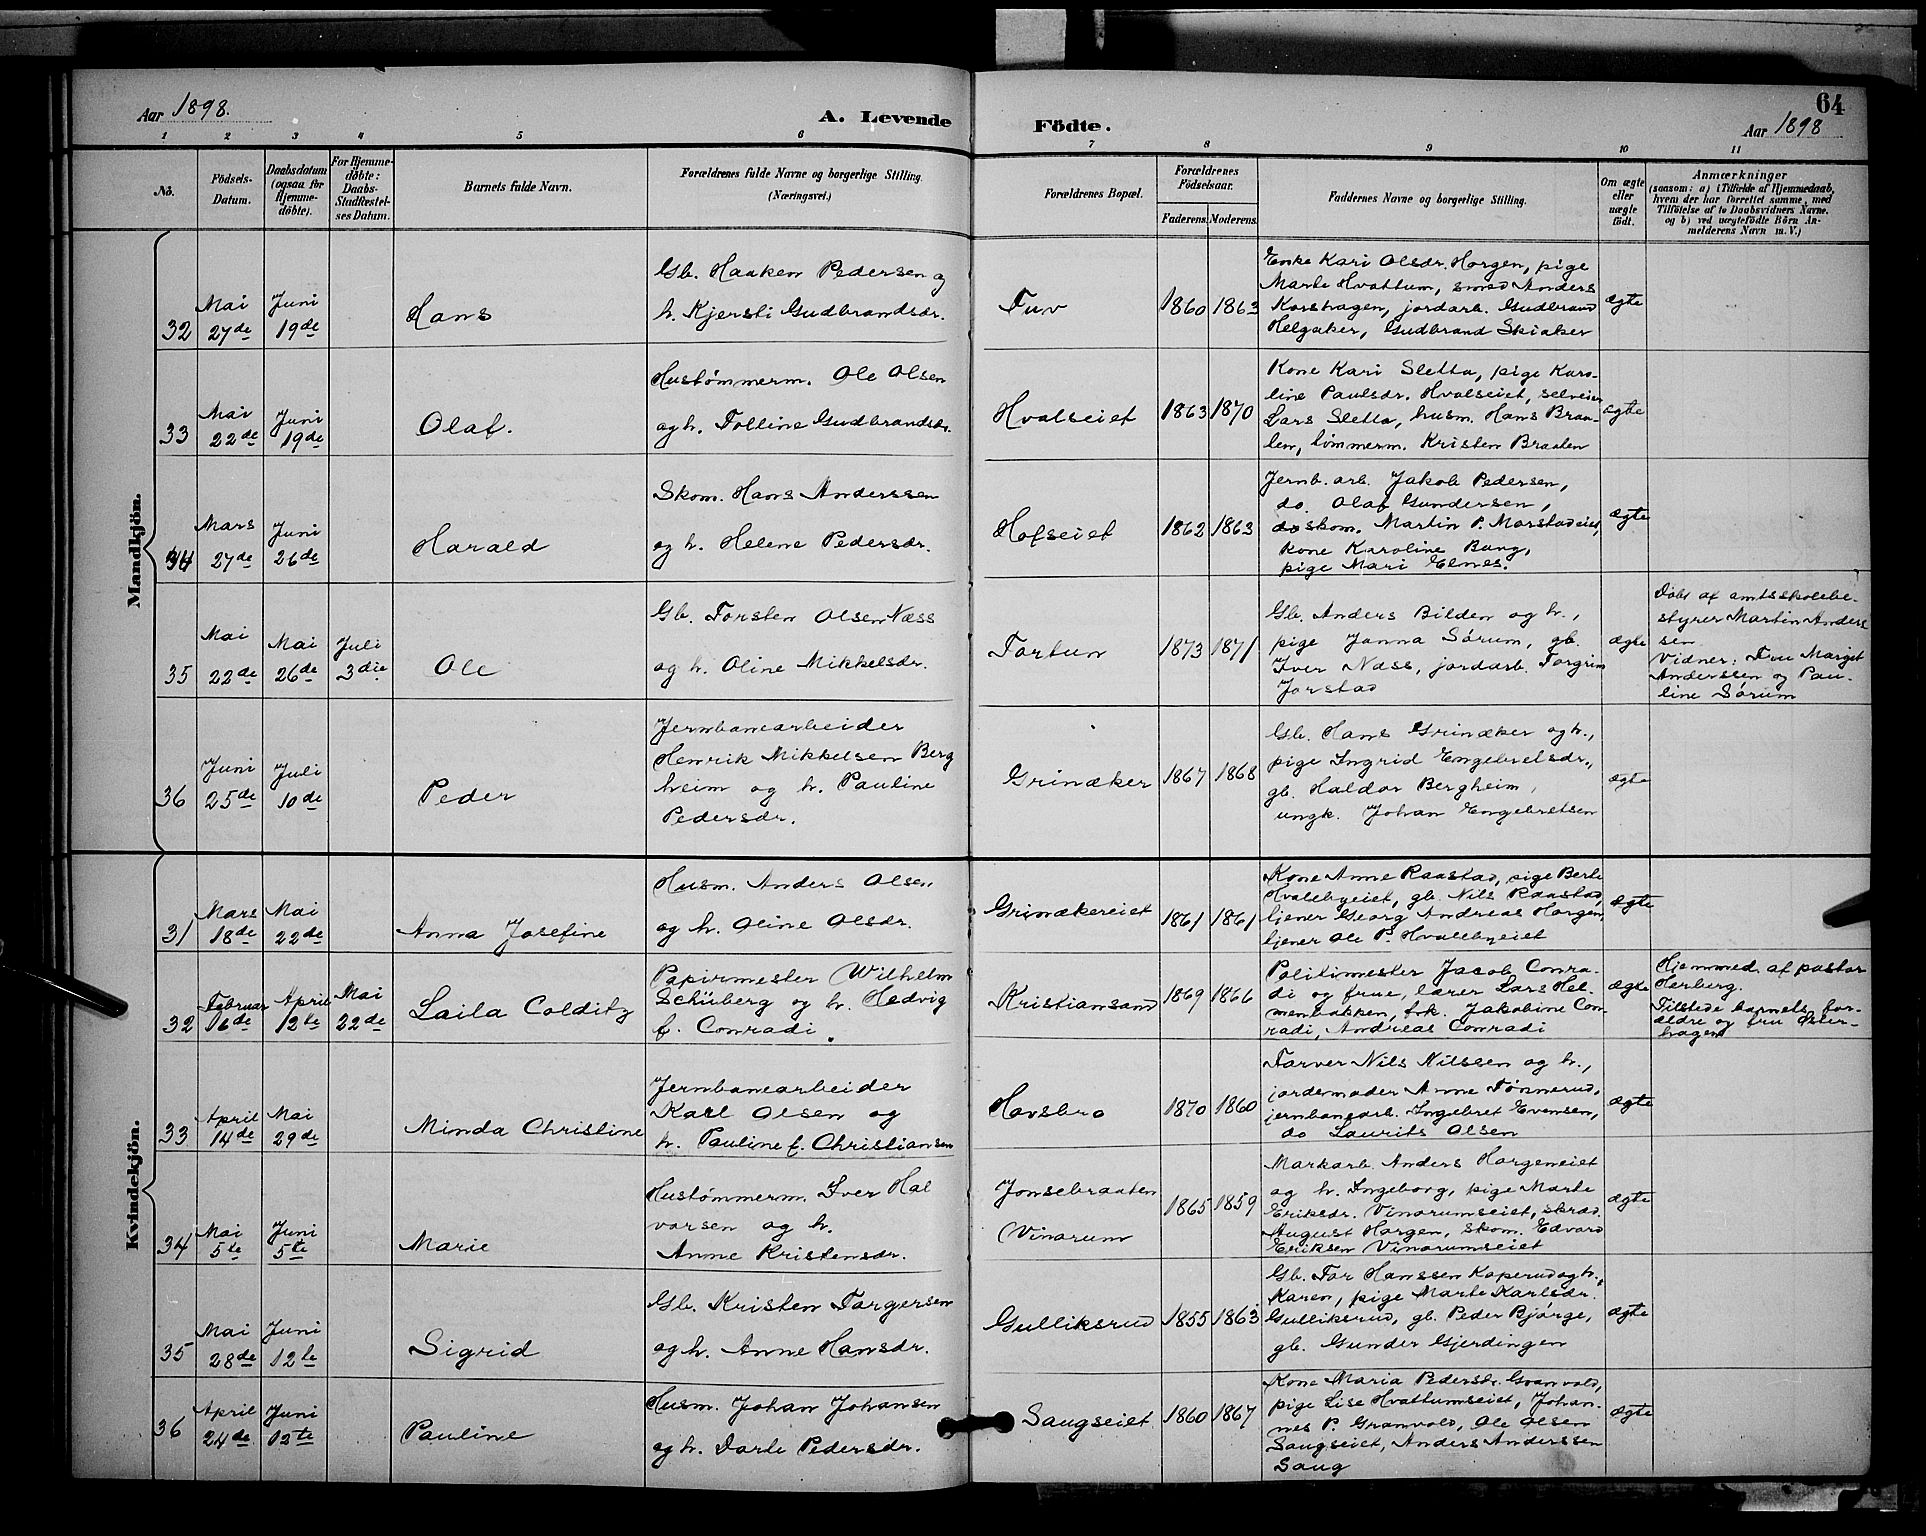 Aar 1898.
A. Levende
Födte.
64
Aar 1898
1 2 3 4 5 6 7 8 9 10 11
No.
Födsels-
Datum.
Daabsdatum
(ogsaa for
Hjemme-
döbte).
For Hjemme-
döbte:
Daabs-
Stadfæstel-
ses Datum.
Barnets fulde Navn.
Forældrenes fulde Navne og borgerlige Stilling.
(Næringsvei.)
Forældrenes Bopæl.
Forældrenes
Födselsaar.
Faderens.
Moderens.
Faddernes Navne og borgerlige Stilling.
Om ægte
eller
uægte
födt.
Anmærkninger
(saasom: a) i Tilfælde af Hjemmedaab,
hvem der har forrettet samme, med
Tilföielse af to Daabsvidners Navne.
og b) ved uægtefödte Börn An-
melderens Navn m. V.)
Mandkjön.
32
Mai
27de
Juni
19de
Hans
Gb. Haaken Pedersen og
h. Kjersti Gudbrandsdr.
Tuv
1860
1863
Enke Kari Olsdr. Horgen, pige
Marte Hvattum, smed Anders
Korshagen, jordarb. Gudbrand
Helgaker, Gudbrand Skiaker
ægte
33
Mai
22de
Juni
19de
Olaf.
Hustømmerm. Ole Olsen
og h. Folline Gudbrandsdr.
Hvalseiet
1863
1870
Kone Kari Sletta, pige Karo-
line Paulsdr. Hvalseiet, selveier
Lars Sletta, husm. Hans Braa-
ten, tømmerm. Kristen Braaten
ægte
34
Mars
27de
Juni
26de
Harald
Skom. Hans Anderssen
og h. Helene Pedersdr.
Hofseiet
1862
1863
Jernb. arb. Jakob Pedersen,
do. Olaf Gundersen,
skom. Martin P. Morstadeiet,
kone Karoline Bang,
pige Mari Elnes.
ægte
35
Mai
22de
Mai
26de
Juli
3die
Ole
Gb. Torsten Olsen Næss
og h. Oline Mikkelsdr.
Tortun
1873
1871
Gb. Anders Bilden og h.,
pige Janna Sørum, gb.
Iver Næss, jordarb. Torgrim
Jorstad
ægte
Døbt af amtsskolebe-
styrer Martin Anders
sen
Vidner: Fru Marget
Anderssen og Pau-
line Sørum
36
Juni
25de
Juli
10de
Peder
Jernbanearbeider
Henrik Mikkelsen Berg
heim og h. Pauline
Pedersdr.
Grinaker
1867
1868
Gb. Hans Grinæker og h.,
pige Ingrid Engebretsdr.,
gb. Haldor Bergheim,
ungk. Johan Engebretsen
ægte
Kvindekjön.
31
Mars
18de
Mai
22de
Anna Josefine
Husm. Anders Olsen
og h. Oline Olsdr.
Grinækereiet
1861
1861
Kone Anne Raastad, pige Berte
Hvalebyeiet, gb. Nils Raastad,
tjener Georg Andreas Horgen,
tjener Ole P. Hvalebyeiet
ægte
32
Februar
16de
April
12te
Mai
22de
Laila Colditz
Papirmester Wilhelm
Schüberg og h. Hedvig
f. Conradi.
Kristiansand
1869
1866
Politimester Jacob Conra-
di og frue, lærer Lars Hel-
menbakken, frk. Jakobine Con
radi, Andreas Conradi
ægte
Hjemmed. af pastor
Herberg.
Tilstede barnets for-
ældre og fru Øster-
hagen
33
April
14de
Mai
29de
Minda Christine
Jernbanearbeider
Karl Olsen og
h. Pauline f. Christiansen
Hovsbro
1870
1860
Farver Nils Nilssen og h.,
jordemoder Anne Tønnerud,
jernbanearb. Ingebret Evensen,
do Laurits Olsen
ægte
34
Mai
5te
Juni
5te
Marie
Hustømmerm. Iver Hal
vorsen og h.
Anne Kristensdr.
Jonsebraaten
Vinorum
1865
1859
Markarb. Anders Horgeneiet
og h. Ingeborg, pige Marte
Eriksdr. Vinorumseiet, skræd.
August Horgen, skom. Edvard
Eriksen Vinorumseiet
ægte
35
Mai
28de
Juni
12te
Sigrid
Gb. Kristen Torgersen
og h. Anne Hansdr.
Gulliksrud
1855
1863
Gb. Tor Hanssen Koperud og h.
Karen, pige Marte Karlsdr.
Gulliksrud, gb. Peder Bjørge,
gb. Gunder Gjerdingen
ægte
36
April
24de
Juni
12te
Pauline
Husm. Johan Johansen
og h. Dorte Pedersdr.
Saugseiet
1860
1867
Kone Maria Pedersdr. Granvold,
pige Lise Hvattumseiet, Johan-
nes P. Granvold, Ole Olsen
Saugseiet, Anders Anderssen
Saug
ægte